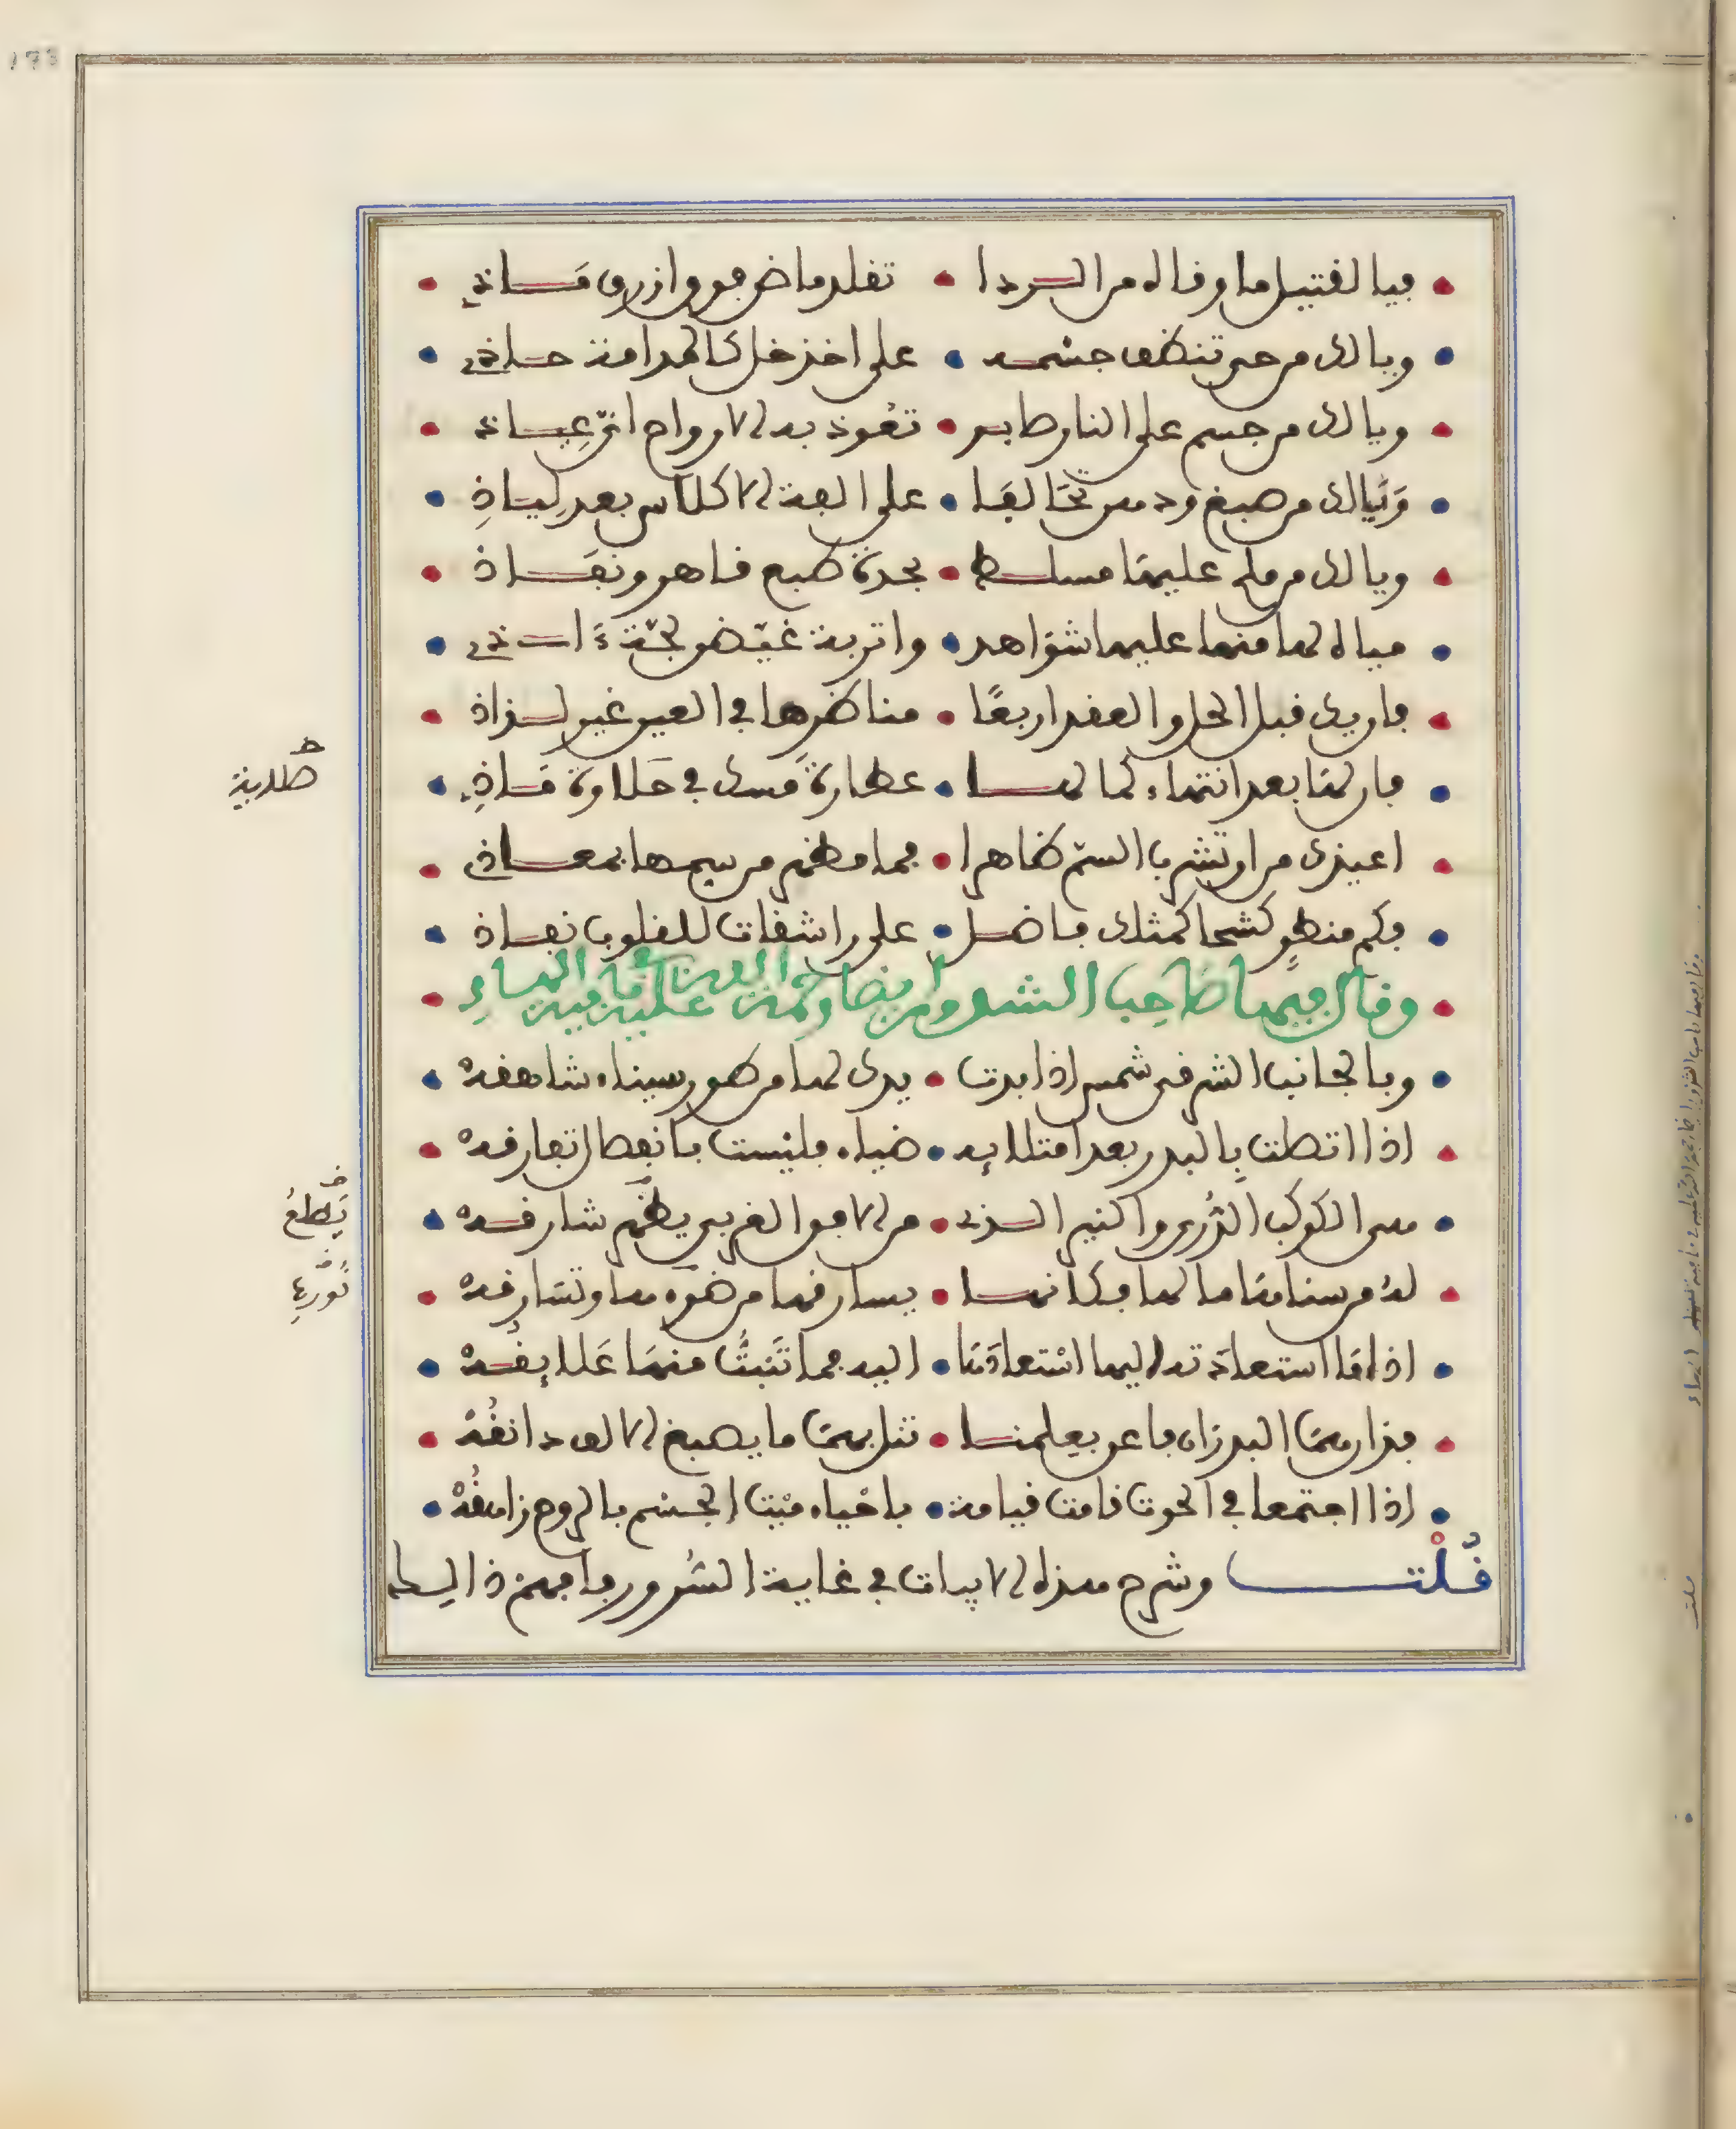 فيا لقتيل ما وقاه من الردا • تقلد ماض فوق ازرق ماذي
ويا لك من حي تنظف جسمه • على اخذ خل كالمدامة حاذي
ويا لك من جسم على النار صابر • تعوذ به الارواح اي عياذ
ويا لك من صبغ ودهن تخالفا • على الفة الاكلاس بعد لياذ
ويا لك من ملح عليها مسلط • بحدة طبع قاهر ونفاذ
مياه لها منها عليها شواهد • واتربة غيض لجة
فاريق قبل الحل والعقد اربعا • مناظرها في العين غير لذاذ
فان لها بعد انتهاء كمالها • عطارة مسك في حلاوة ماذي
صلابة
اعيذك من ان تشرب السم ظاهرا • فما مطعم من سمها بمعاذ
فكم منطو كشحا كمثلك فاضل • على راشقات للقلوب نفاذ
وقال فيها صاحب الشذور ايضا رحمة الله عليه في قافية الهاء
وبالجانب الشرقي شمس اذا بدت • يدك لها من طور سيناء شاهقه
اذا اتصلت بالبدر بعد امتلائه • ضياء فليست بانفصال تفارقه
هي الكوكب الدري والنير الذي • من الافق الغربي يطلع شارقه
يطلع
له من سناها ما لها فكانما • يسارقها من ضوءها وتسارقه
نوره
اذا ما استعادته اليها استعادها • اليه فما تنبت منها علايقه
فذانهما البدران فاعن بعلمنا • تنل بهما ما يصبغ الالف دانقه
اذا اجتمعا في الحوت قامت قيامة • باحياء ميت الجسم بالروح زاهقه
قلت وشرح هذه الابيات في غاية السرور فافهم ذلك